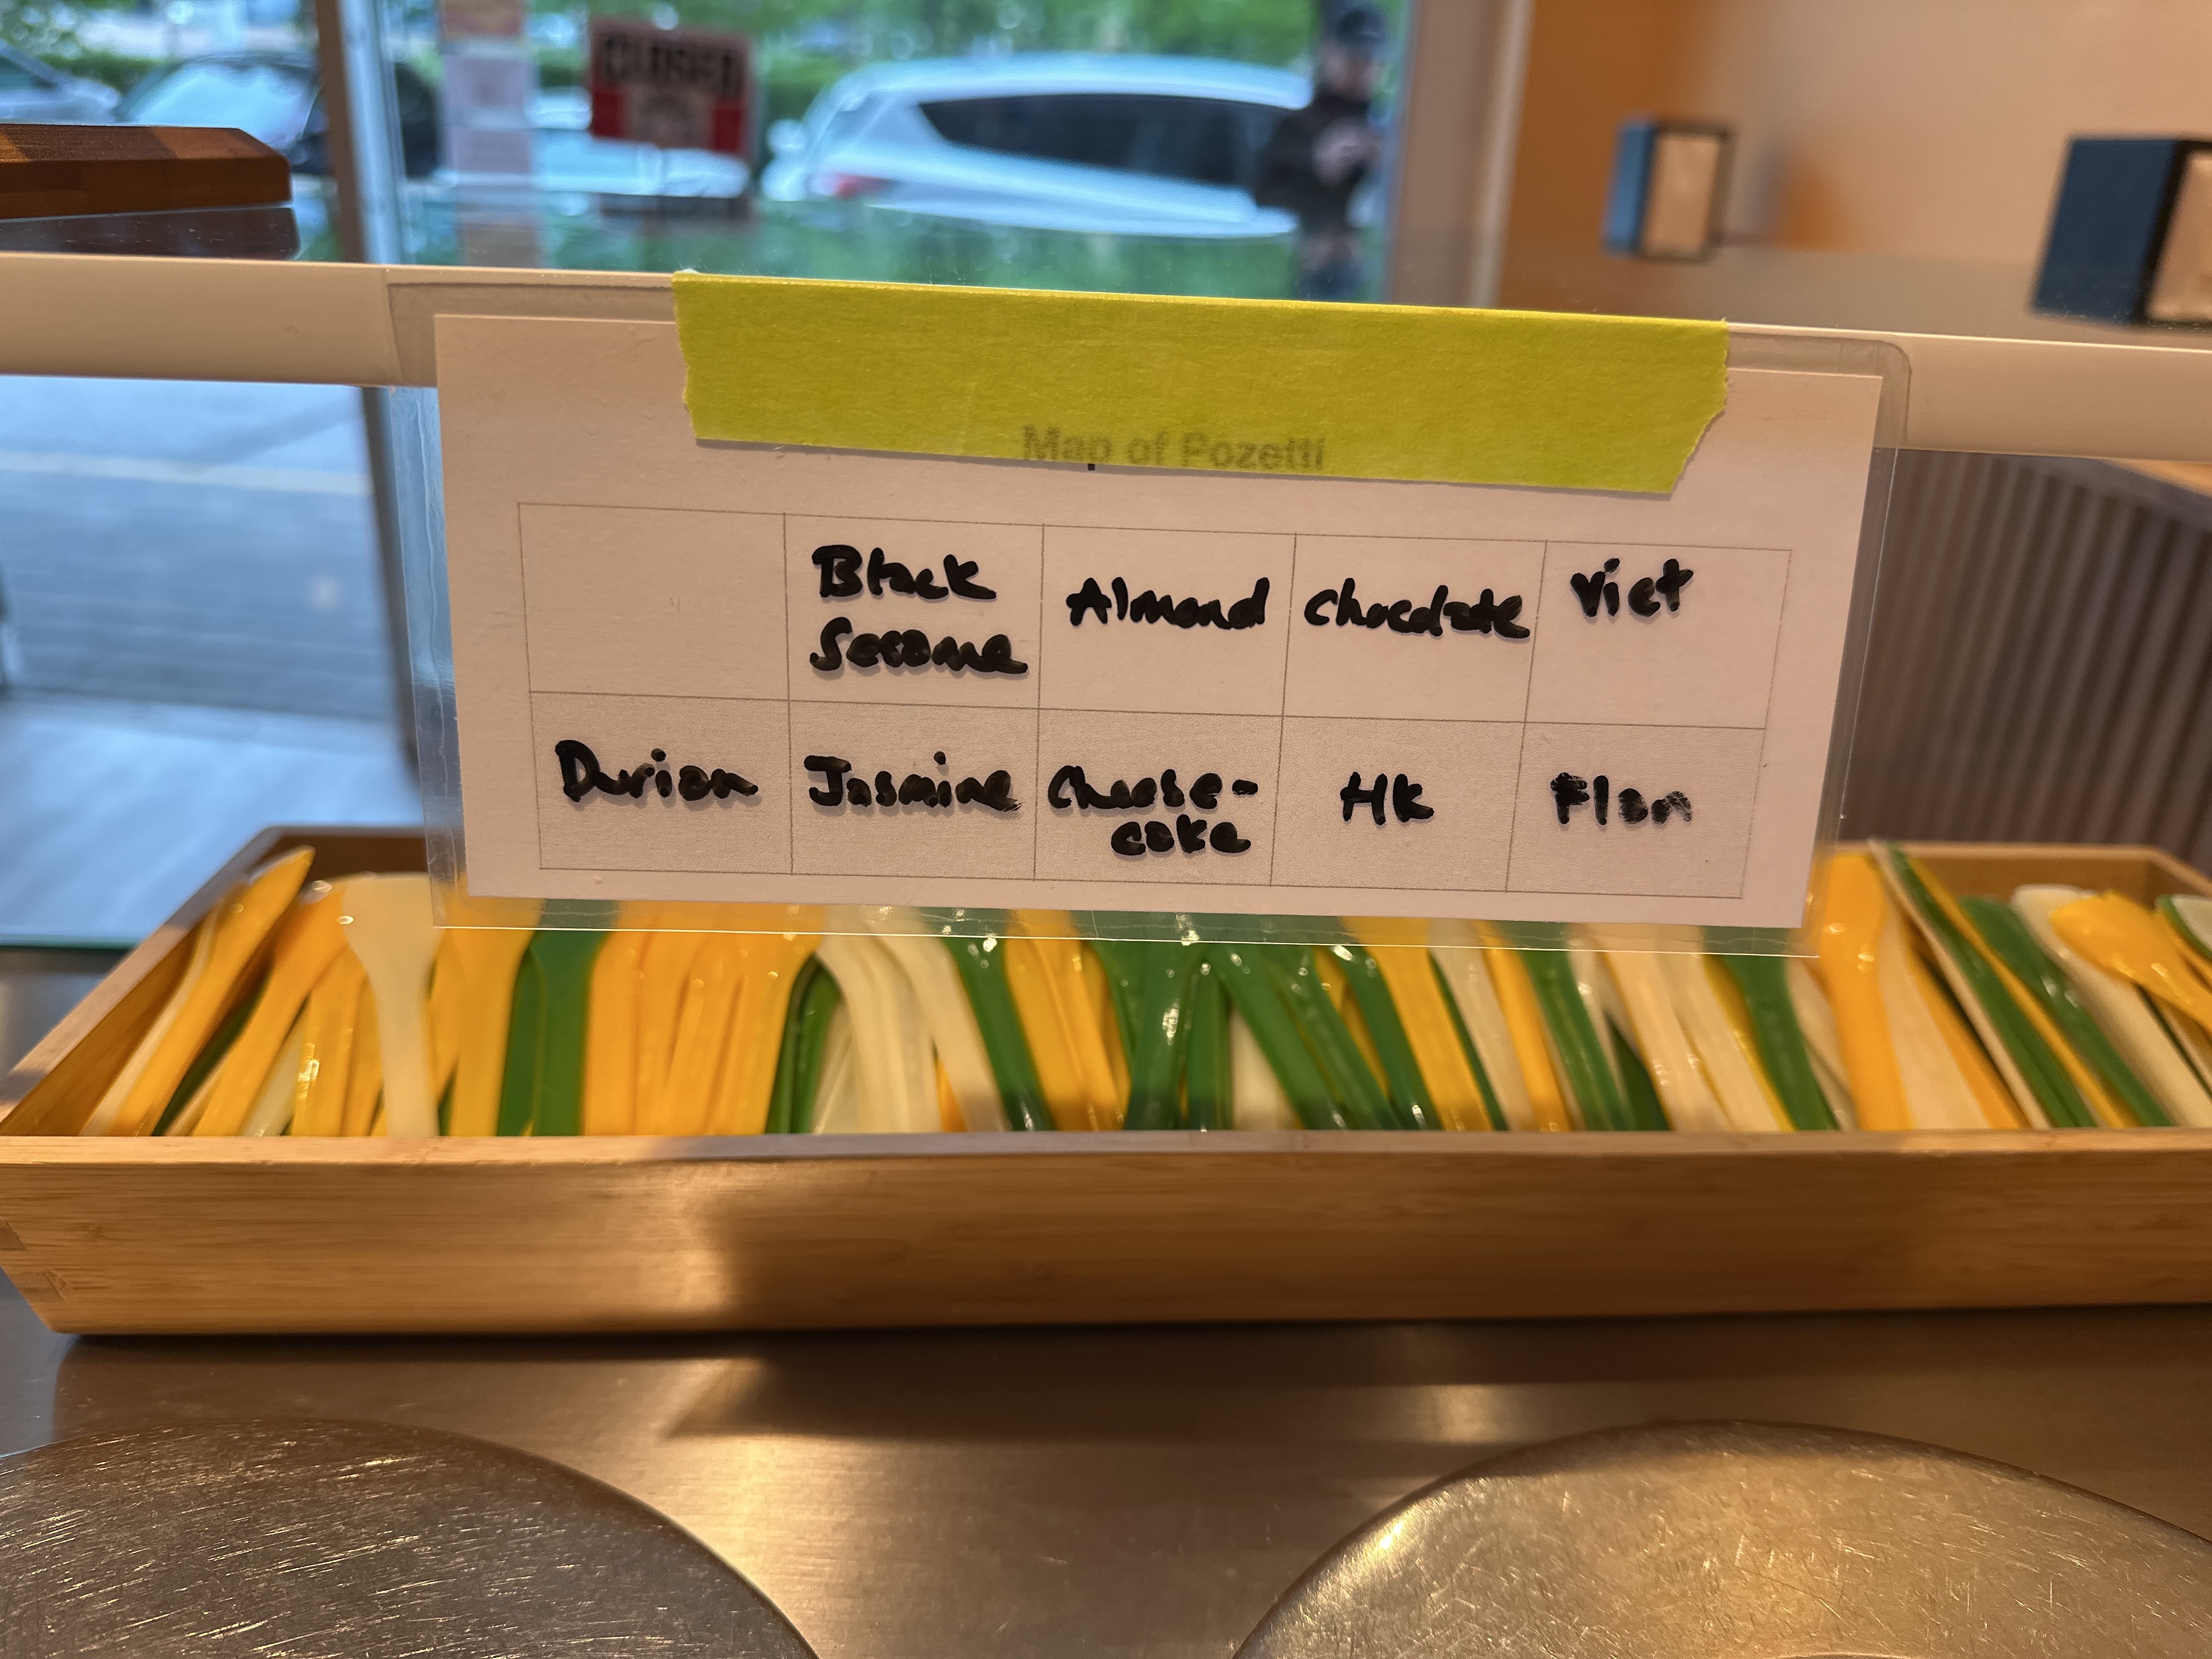 CLOSED
Map of Pozetti
Black
Sesame
Almond
Chocolate
Viet
Durian
Jasmine
Cheese-
cake
HK
Flan